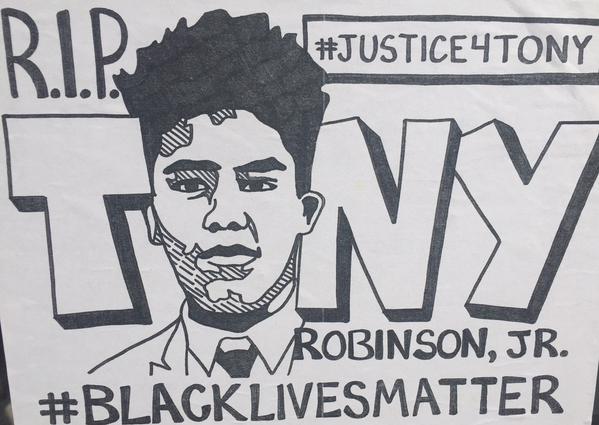 R.I.P.
#JUSTICE4TONY
TONY
ROBINSON, JR.
#BLACKLIVESMATTER